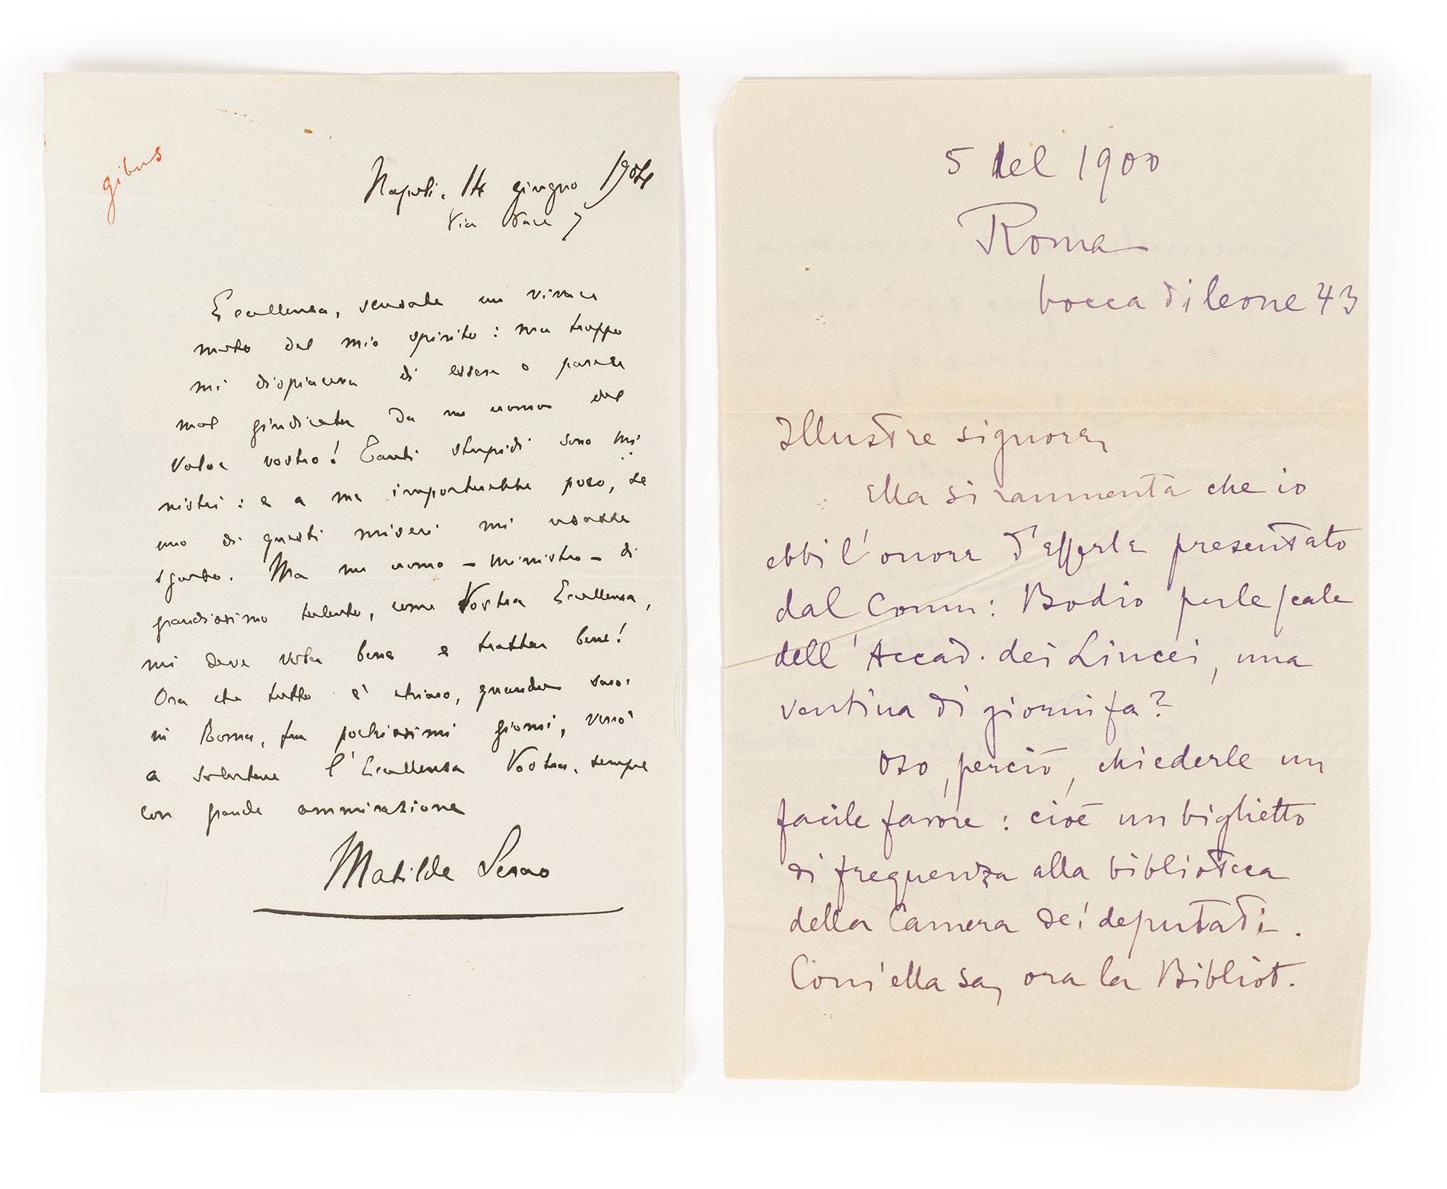 gibus
Napoli. 14 giugno 1904
Via 7
Eccellenza, scusate un vivace
moto del mio spirito: ma troppo
mi dispiaceva di essere o parere
mal giudicata da un uomo del
valor vostro! Tanti stupidi sono mi
nistri: e a me importerebbe poco, se
uno di questi miseri mi usasse
sgarbo. Ma un uomo – ministro – di
grandissimo talento, come Vostra Eccellenza,
mi deve voler bene e trattar bene!
Ora che tutto è chiaro, quando sarò
in Roma, fra pochissimi giorni, verrò
a salutare l'Eccellenza Vostra, sempre
con grande ammirazione
Matilde Serao
5 del 1900
Roma
bocca di leone 43
Illustre signore,
Ella si rammenta che io
ebbi l'onore d'esserle presentato
dal Comm: Bodio per le scale
dell'Accad. dei Lincei, una
ventina di giorni fa?
Oso, perciò, chiederle un
facile favore: cioè un biglietto
di frequenza alla biblioteca
della Camera dei deputati.
Com'ella sa, ora la Bibliot.